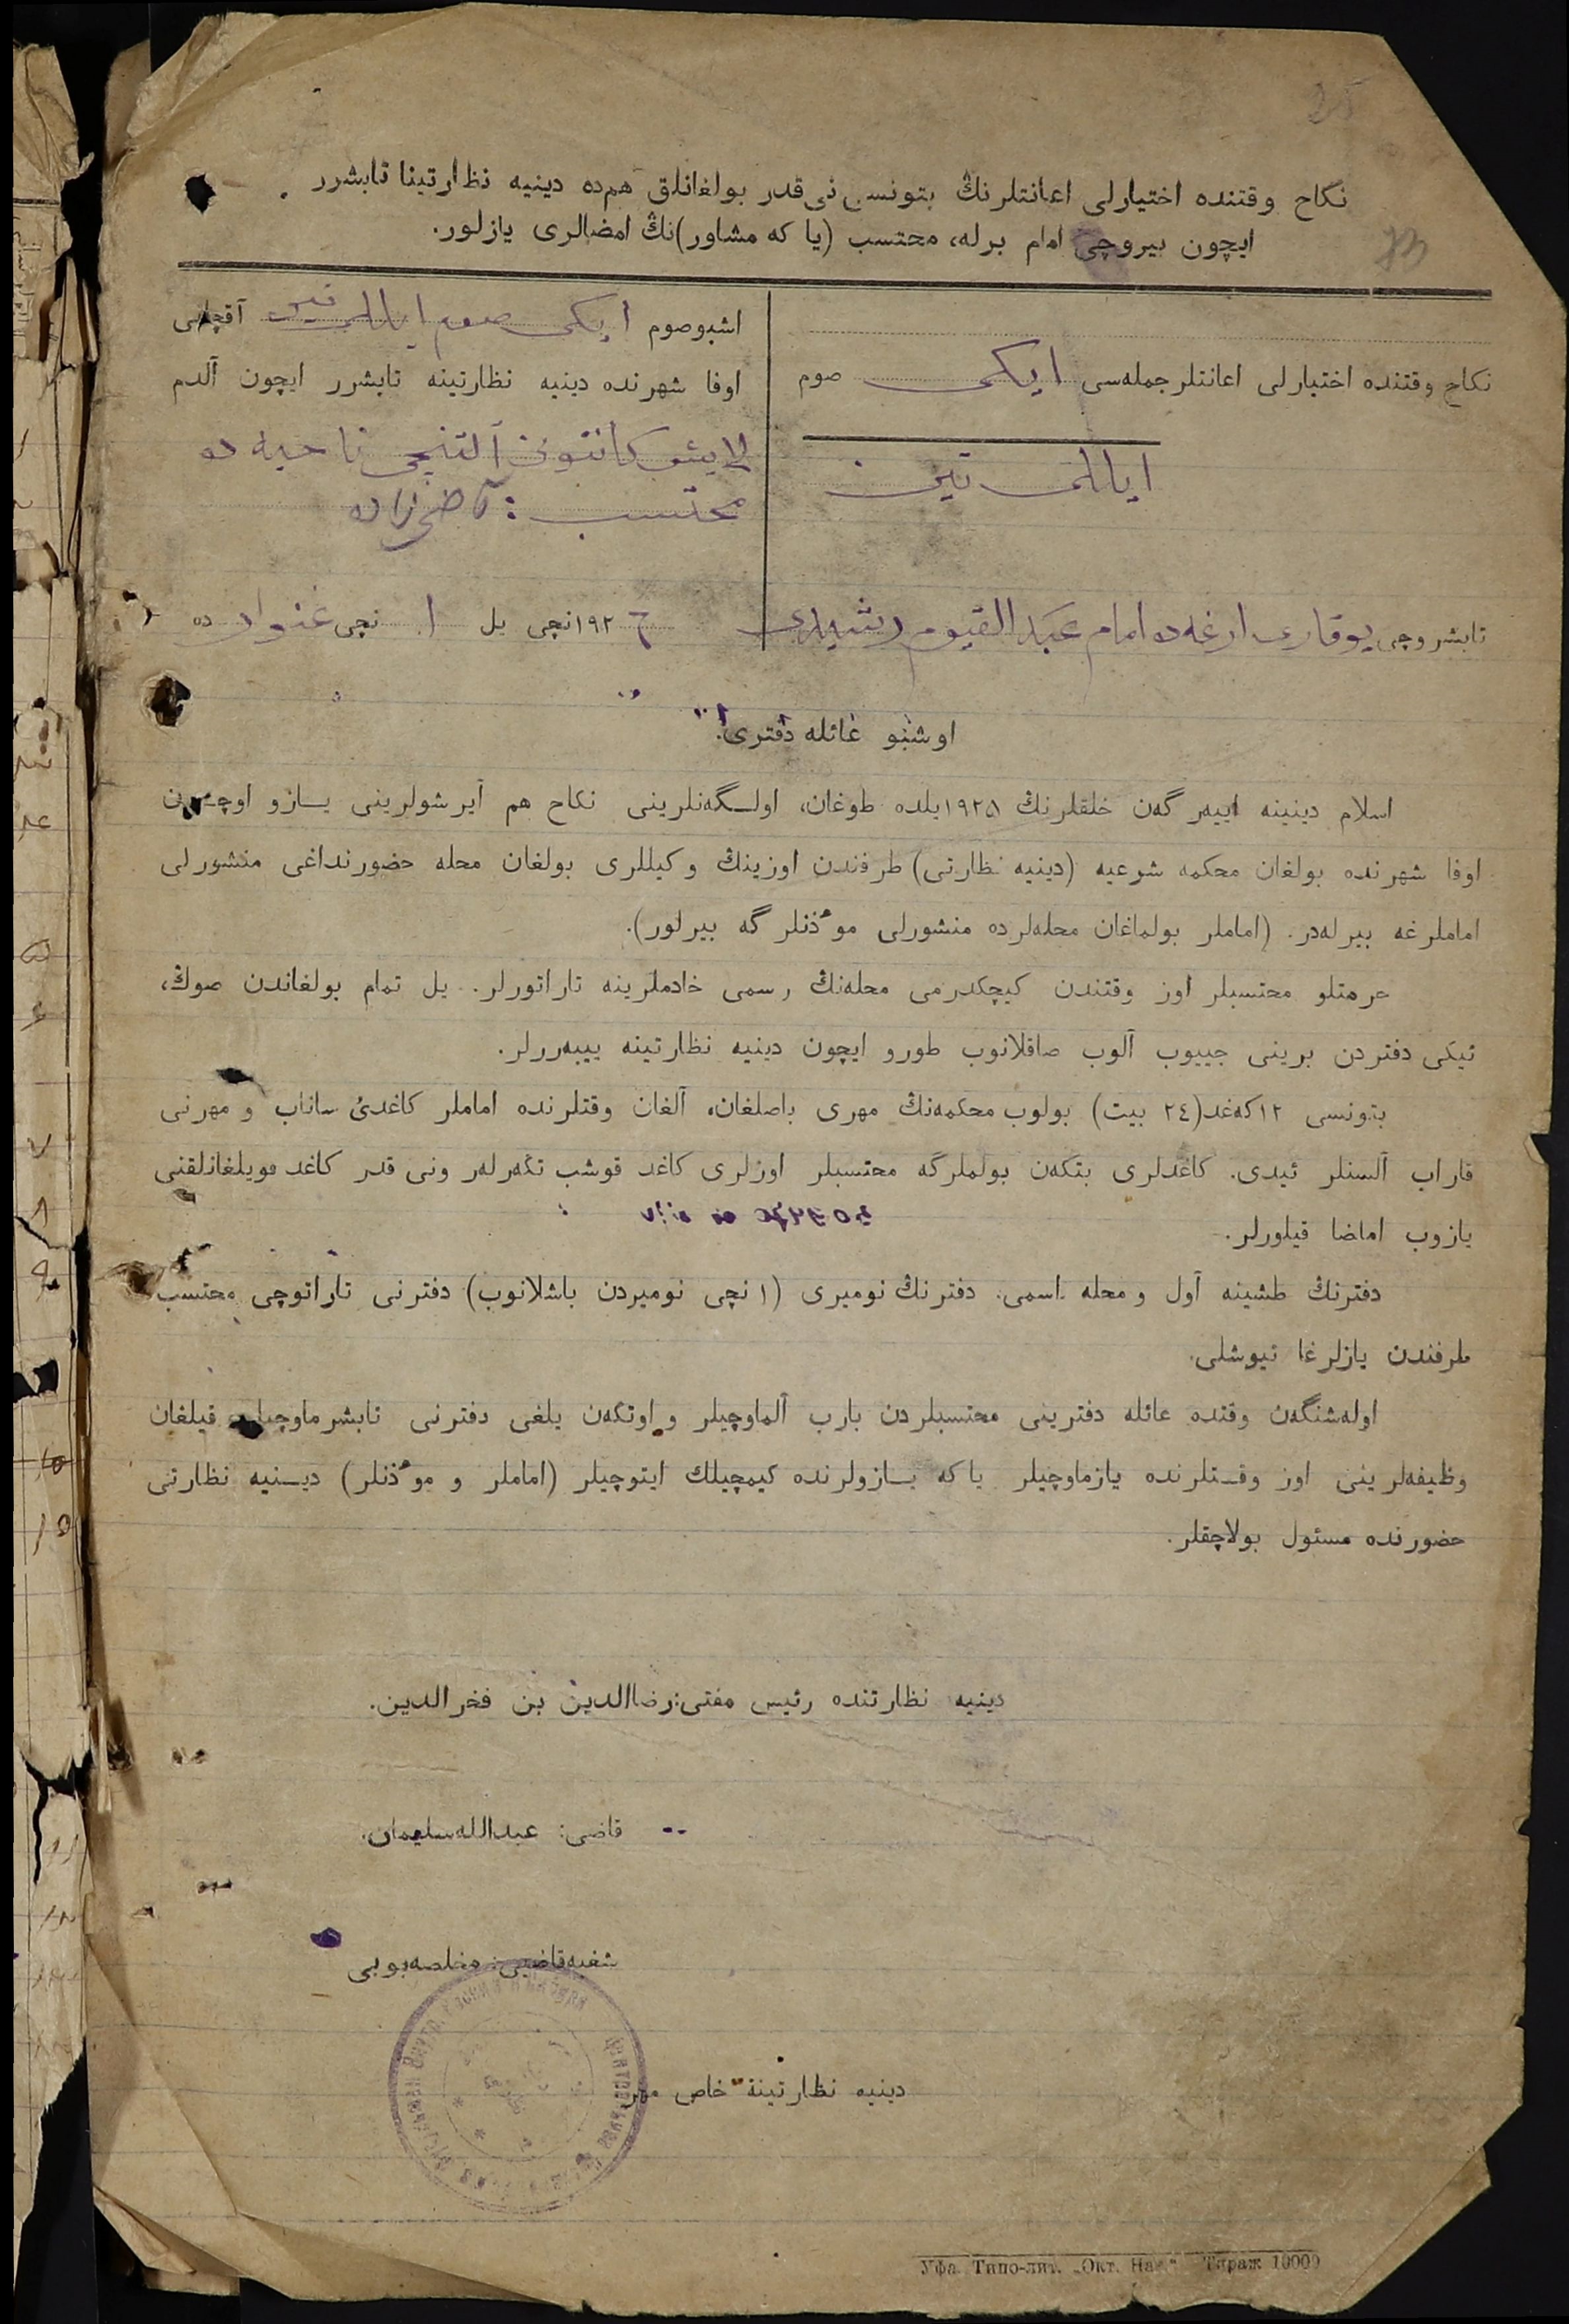 نكاح وقتنده اختيارلى اعانتلرنڭ بتونسى نى قدر بولغانلق هم‌ده دينيه نظارتينا تابشرر
ايچون بيروچى امام برله، محتسب (يا كه مشاور)نڭ امضالرى يازلور.
نكاح وقتنده اختيارلى اعانتلر جمله‌سى ايكى صوم
ايللى تين
اشبو صوم ايكى صوم ايللى تين آقچانى
اوفا شهرنده دينيه نظارتينه تابشرر ايچون آلدم
كانتون آلتنچى ناحيه ده
محتسب : قاضى زاده
تابشروچى يوقارى ارغه‌ده امام عبد القيوم رشيدى
١٩٢ نچى يل ١ نچى غنوار ده
اوشبو عائله دفترى
اسلام دينينه اييەرگەن خلقلرنڭ ١٩٢٥ يلده طوغان، اولـگەنلرينى نكاح هم آيرشولرينى يـازو اوچـون
اوفا شهرنده بولغان محكمه شرعيه (دينيه نظارتى) طرفندن اوزينڭ وكيللرى بولغان محله حضورنداغى منشورلى
اماملرغه بيرلەدر. (اماملر بولماغان محلەلرده منشورلى مو‌ٔذنلرگه بيرلور).
حرمتلو محتسبلر اوز وقتندن كيچكدرمى محلەنڭ رسمى خادملرينه تاراتورلر. يل تمام بولغاندن صوڭ،
ئيكى دفتردن برينى جييوب آلوب صاقلانوب طورو ايچون دينيه نظارتينه ييبەررلر.
بتونسى ١٢ كەغد(٢٤ بيت) بولوب محكمەنڭ مهرى باصلغان، آلغان وقتلرنده اماملر كاغدئ ساناب و مهرنى
قاراب آلسنلر ئيدى. كاغدلرى بتكەن بولملرگه محتسبلر اوزلرى كاغد قوشب تگەرلەر ونى قدر كاغد قويلغانلقنى
يازوب امضا قيلورلر.
دفترنڭ طشينه آول و محله اسمى. دفترنڭ نوميرى (١ نچى نوميردن باشلانوب) دفترنى تاراتوچى محتسب
طرفندن يازلرغا تيوشلى.
اولەشنگەن وقتده عائله دفترينى محتسبلردن بارب آلماوچيلر و اوتكەن يلغى دفترنى تابشرماوچيلر، قيلغان
وظيفەلرينى اوز وقـتلرنده يازماوچيلر يا كه يـازولرنده كيمچيلك ايتوچيلر (اماملر و مو‌ٔذنلر) ديـنيه نظارتى
حضورنده مسئول بولاچقلر.
دينيه نظارتنده رئيس مفتى: رضاالدين بن فخرالدين.
قاضى: عبدالله سليمان.
مخلصه بوبى
دينيه نظارتينڭ خاص مهر
Уфа. Типо-лит. „Окт. Нат.“ Тираж 10000